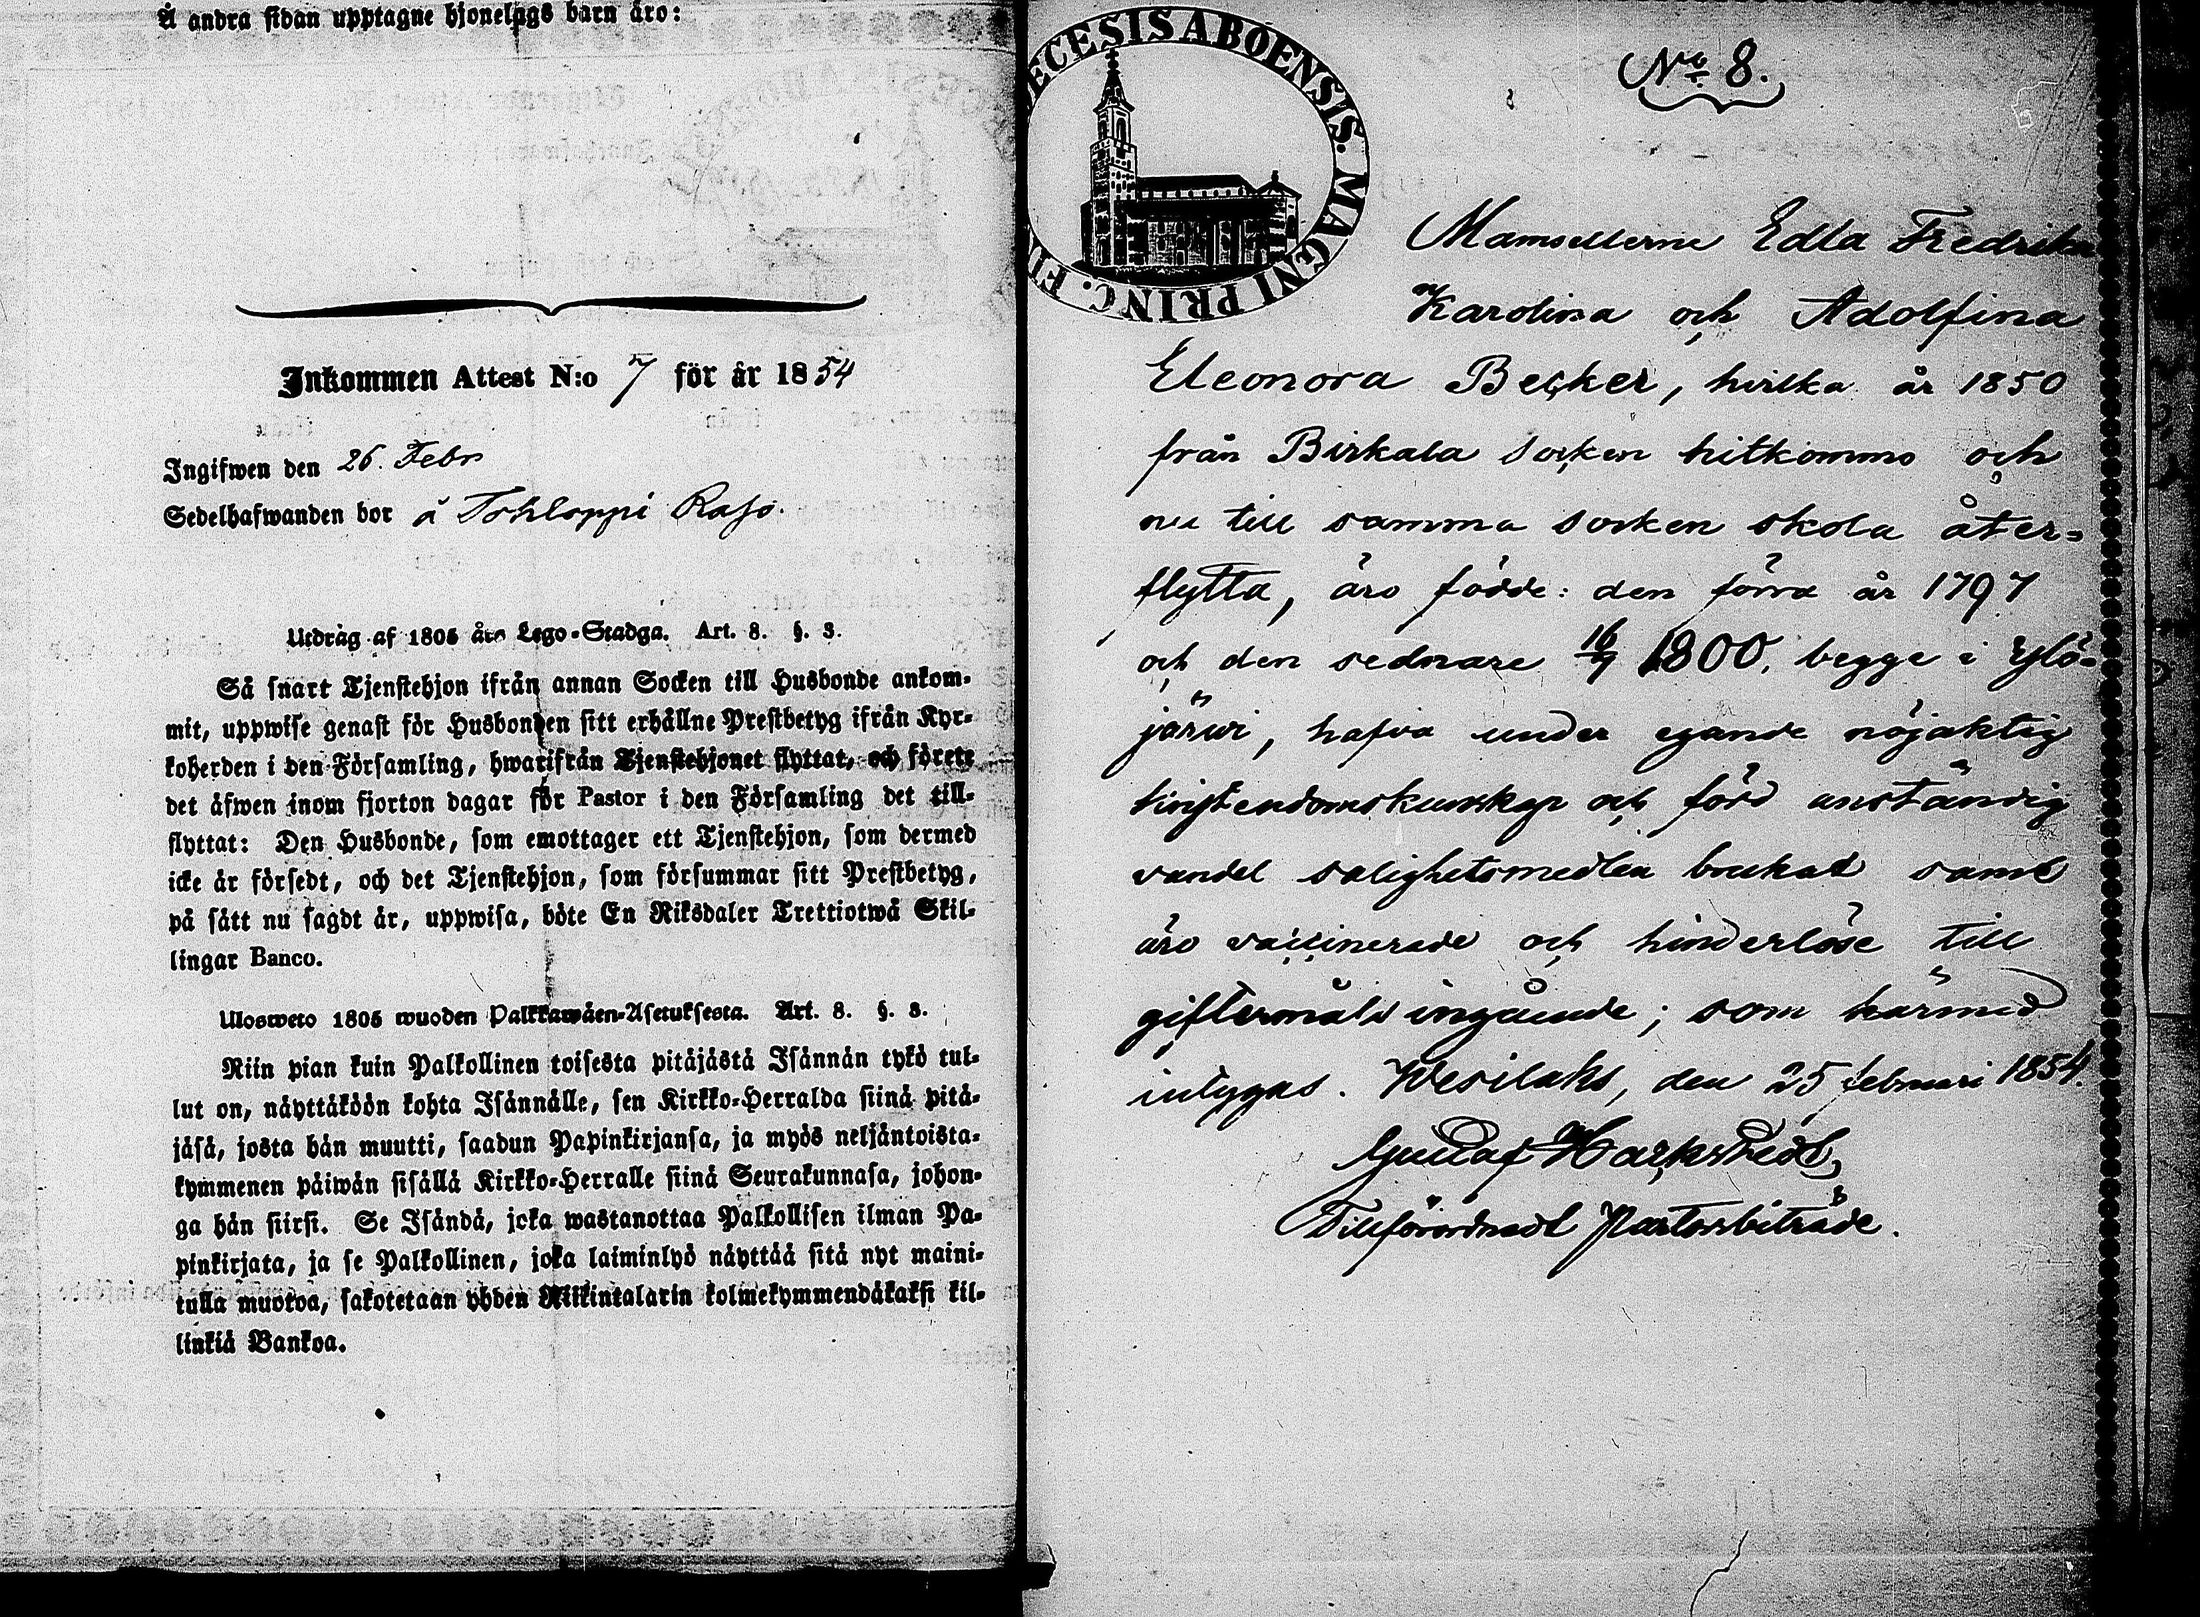 Å andra sidan upptagne hjonelags barn äro:
Inkommen Attest N:o 7 för år 1854
Ingifwen den 26. Febr
Sedelhafwanden bor å Tohloppi
Utdrag af 1805 års Lego-Stadga. Art. 8. §. 3.
Så snart Tjenstehjon ifrån annan Socken till Husbonde ankom-
mit, uppwise genast för Husbonden sitt erhållne Prestbetyg ifrån Kyr-
koherden i den Församling, hwarifrån Tjenstehjonet flyttat, och förete
det äfwen inom fjorton dagar för Pastor i den Församling det till-
flyttat: Den Husbonde, som emottager ett Tjenstehjon, som dermed
icke är försedt, och det Tjenstehjon, som försummar sitt Prestbetyg,
på sätt nu sagdt är, uppwisa, böte En Riksdaler Trettiotwå Skil-
lingar Banco.
Ulosweto 1805 wuoden Palkkawäen-Asetuksesta. Art. 8. §. 3.
Niin pian kuin Palkollinen toisesta pitäjästä Isännän tykö tul-
lut on, näyttäköön kohta Isännälle, sen Kirkko-Herralda siinä pitä-
jäsä, josta hän muutti, saadun Papinkirjansa, ja myös neljäntoista-
kymmenen päiwän sisällä Kirkko-Herralle siinä Seurakunnasa, johon-
ga hän siirsi. Se Isändä, joka wastanottaa Palkollisen ilman Pa-
pinkirjata, ja se Palkollinen, joka laiminlyö näyttää sitä nyt maini-
tulla muotoa, sakotetaan yhden Riikintalarin kolmekymmendäkaksi kil-
linkiä Bankoa.
ECESIS ABOENSIS. MAGNI PRINC. FI
No 8.
Mamsellerne Edla Fredrika
Karolina och Adolfina
Eleonora Becker, hvilka år 1850
från Birkala socken hitkommo och
nu till samma socken skola åter-
flytta, äro födde: den förra år 1797
och den sednare 16/7 1800, begge i Ylö-
järwi, hafva under egande nöjaktig
kristendomskunskap och förd anständig
vandel salighetsmedlen brukat samt
äro vaccinerade och hinderlöse till
giftermåls ingående; som härmed
intygas. Wesilaks, den 25 februari 1854.
Gustaf
Tillförordnad Pastorsbiträde.